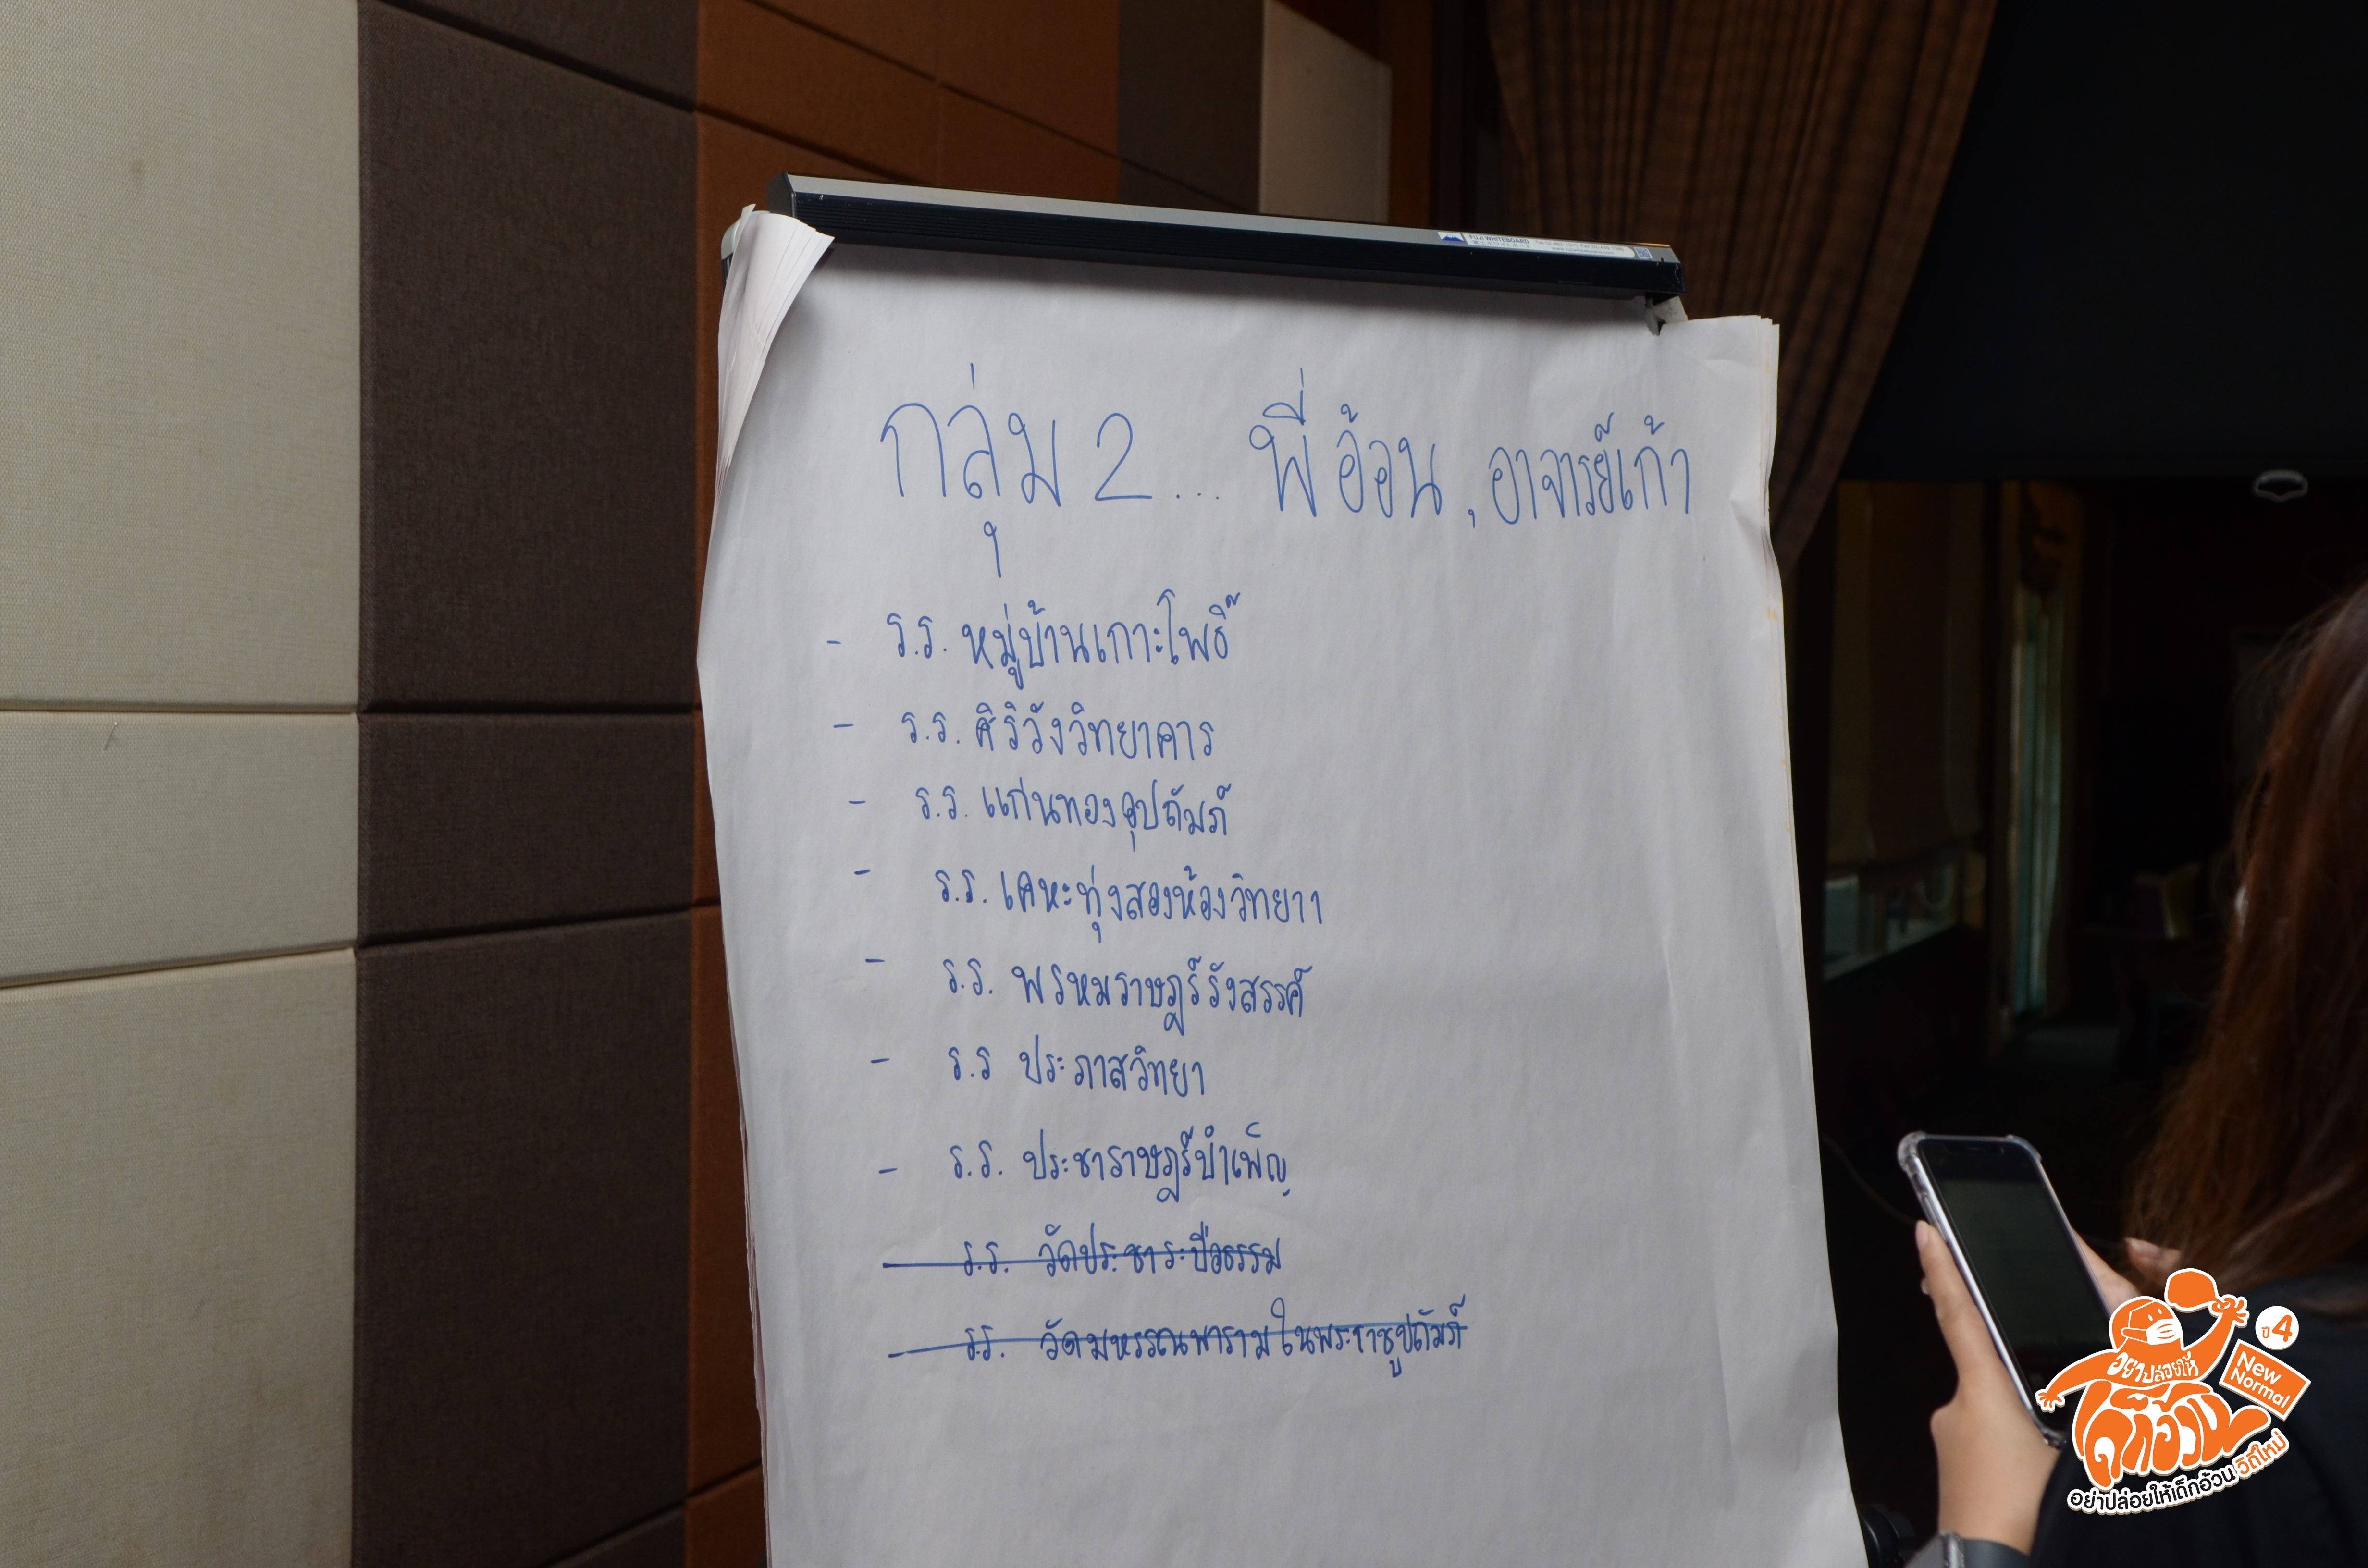 FUJI WHITEBOARD
กลุ่ม 2... พี่อ้อน, อาจารย์เก้า
- ร.ร. หมู่บ้านเกาะโพธิ์
- ร.ร. ศิริวังวิทยาคาร
- ร.ร. แก่นทองอุปถัมภ์
- ร.ร. เคหะทุ่งสองห้องวิทยา 1
- ร.ร. พรหมราษฎร์รังสรรค์
- ร.ร ประภาสวิทยา
- ร.ร. ประชาราษฎร์บำเพ็ญ
ร.ร. วัดประชาระบือธรรม
- ร.ร. วัดมหรรณพารามในพระราชูปถัมภ์
ปี 4
New Normal
อย่าปล่อยให้
เด็กอ้วน
อย่าปล่อยให้เด็กอ้วน วิถีใหม่